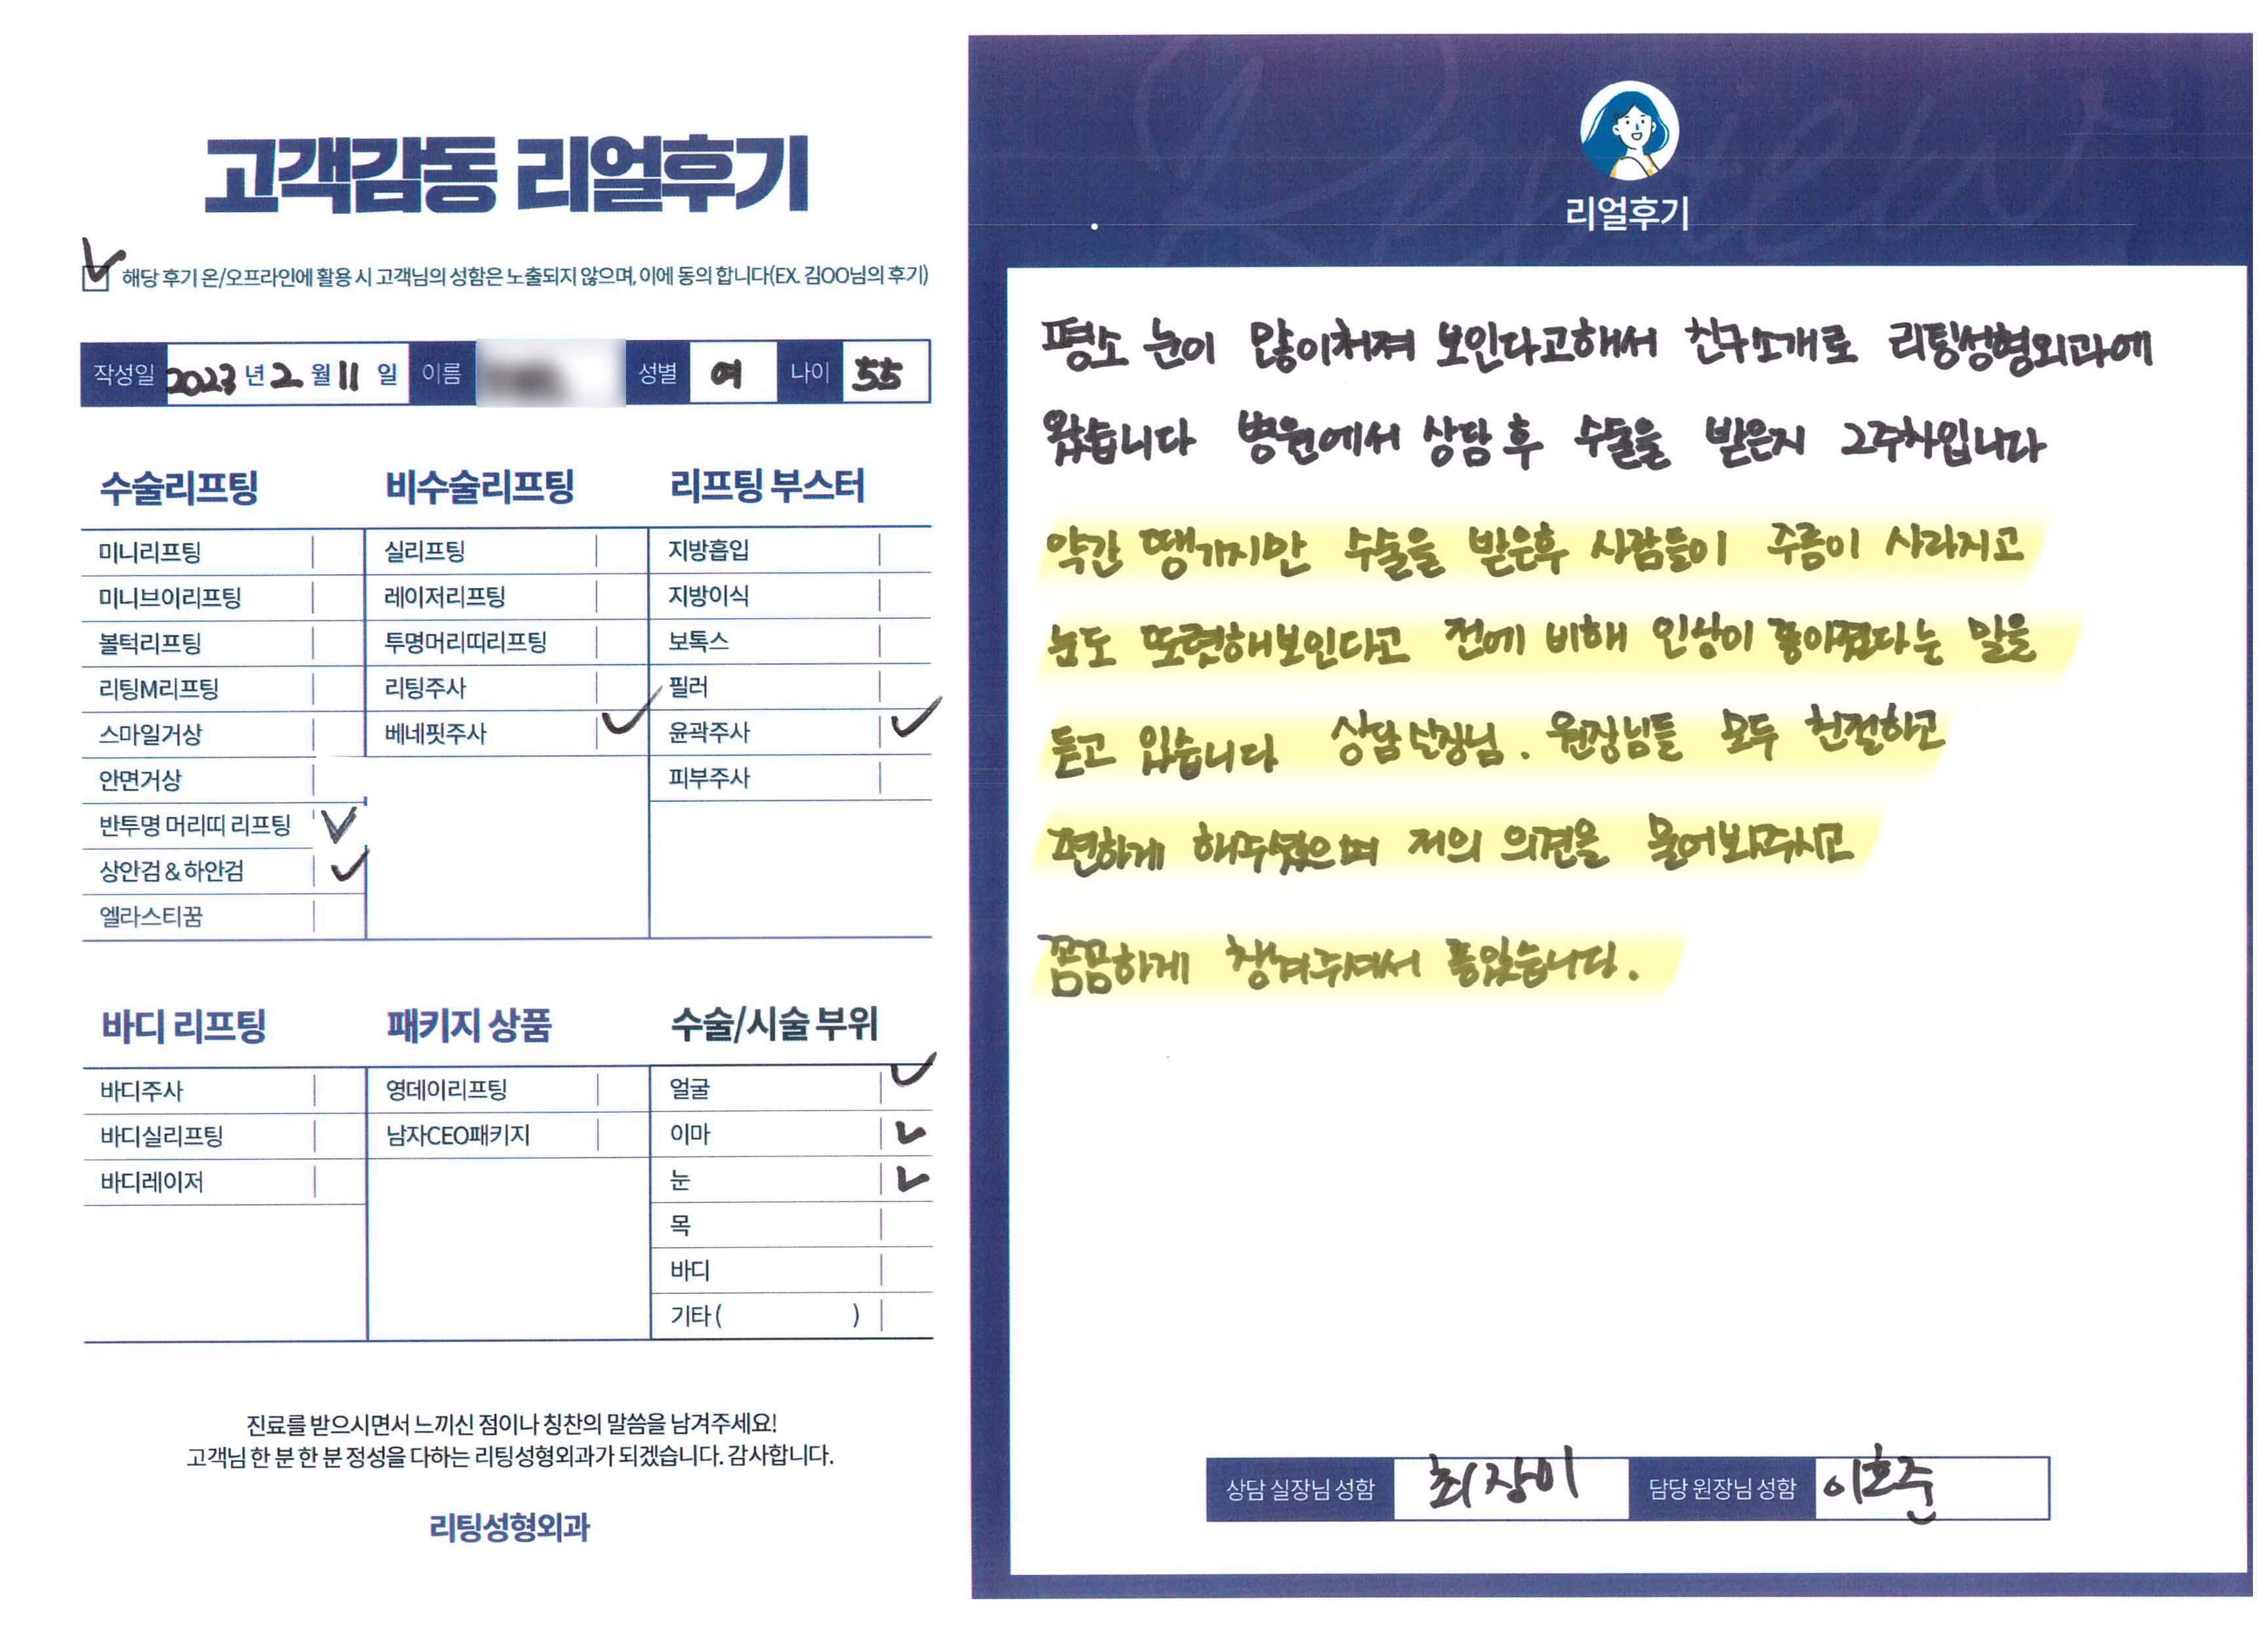 고객감동 리얼후기
해당 후기 온/오프라인에 활용 시 고객님의 성함은 노출되지 않으며, 이에 동의 합니다(EX. 김OO님의 후기)
작성일 2023 년 2 월 11 일 이름 성별 여 나이 55
수술리프팅
미니리프팅
미니브이리프팅
볼턱리프팅
리팅M리프팅
스마일거상
안면거상
반투명 머리띠 리프팅
상안검 & 하안검
엘라스티꿈
비수술리프팅
실리프팅
레이저리프팅
투명머리띠리프팅
리팅주사
베네핏주사
리프팅 부스터
지방흡입
지방이식
보톡스
필러
윤곽주사
피부주사
바디 리프팅
바디주사
바디실리프팅
바디레이저
패키지 상품
영데이리프팅
남자CEO패키지
수술/시술 부위
얼굴
이마
눈
목
바디
기타 ( )
진료를 받으시면서 느끼신 점이나 칭찬의 말씀을 남겨주세요!
고객님 한 분 한 분 정성을 다하는 리팅성형외과가 되겠습니다. 감사합니다.
리팅성형외과
Review
리얼후기
평소 눈이 많이처져 보인다고해서 친구소개로 리팅성형외과에
왔습니다 병원에서 상담 후 수술을 받은지 2주차입니다
약간 땡기지만 수술을 받은후 사람들이 주름이 사라지고
눈도 또렷해보인다고 전에 비해 인상이 좋아졌다는 말을
듣고 있습니다 상담실장님. 원장님들 모두 친절하고
편하게 해주셨으며 저의 의견을 물어봐주시고
꼼꼼하게 챙겨주셔서 좋았습니다.
상담 실장님 성함 최장미 담당 원장님 성함 이호준